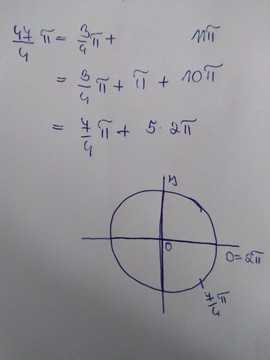 47/4 π = 3/4 π + 11π
= 3/4 π + π + 10π
= 7/4 π + 5 · 2π
y
0
0=2π
7/4 π